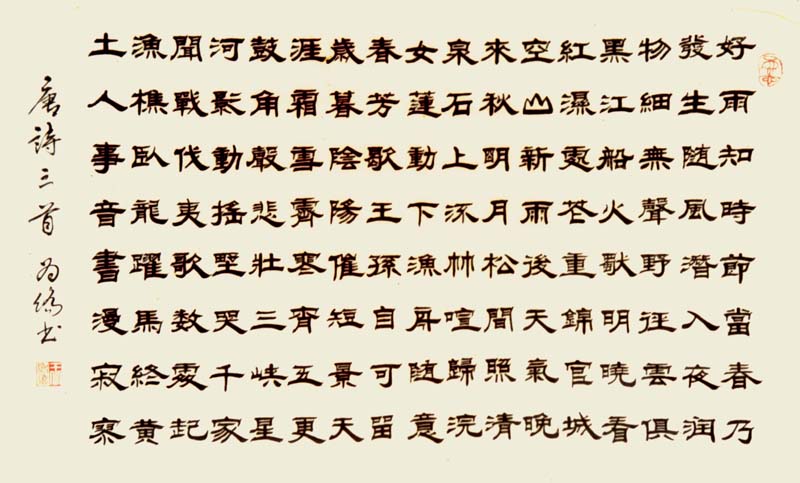 好雨知時節當春乃
發生随風潛入夜润
物細無聲野徑雲俱
黑江船火獨明曉看
紅濕處花重錦官城
空山新雨後天氣晚
來秋明月松間照清
泉石上流竹喧歸浣
女蓮動下漁舟随意
春芳歇王孫自可留
歲暮陰陽催短景天
涯霜雪霽寒宵五更
鼓角聲悲壯三峽星
河影動搖野哭千家
聞戰伐夷歌數處起
漁樵臥龍躍馬終黃
土人事音書漫寂寥
唐詩三首 书